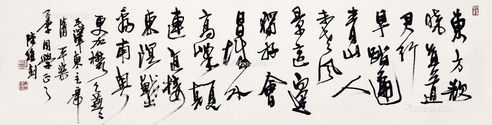 東方欲
曉莫道
君行
早踏遍
青山人
未老風
景這邊
獨好會
昌城外
高峰顛
連直接
東溟戰
看南粤
更加鬱鬱蔥蔥
毛澤東主席
清平樂
同學正之
陸維釗